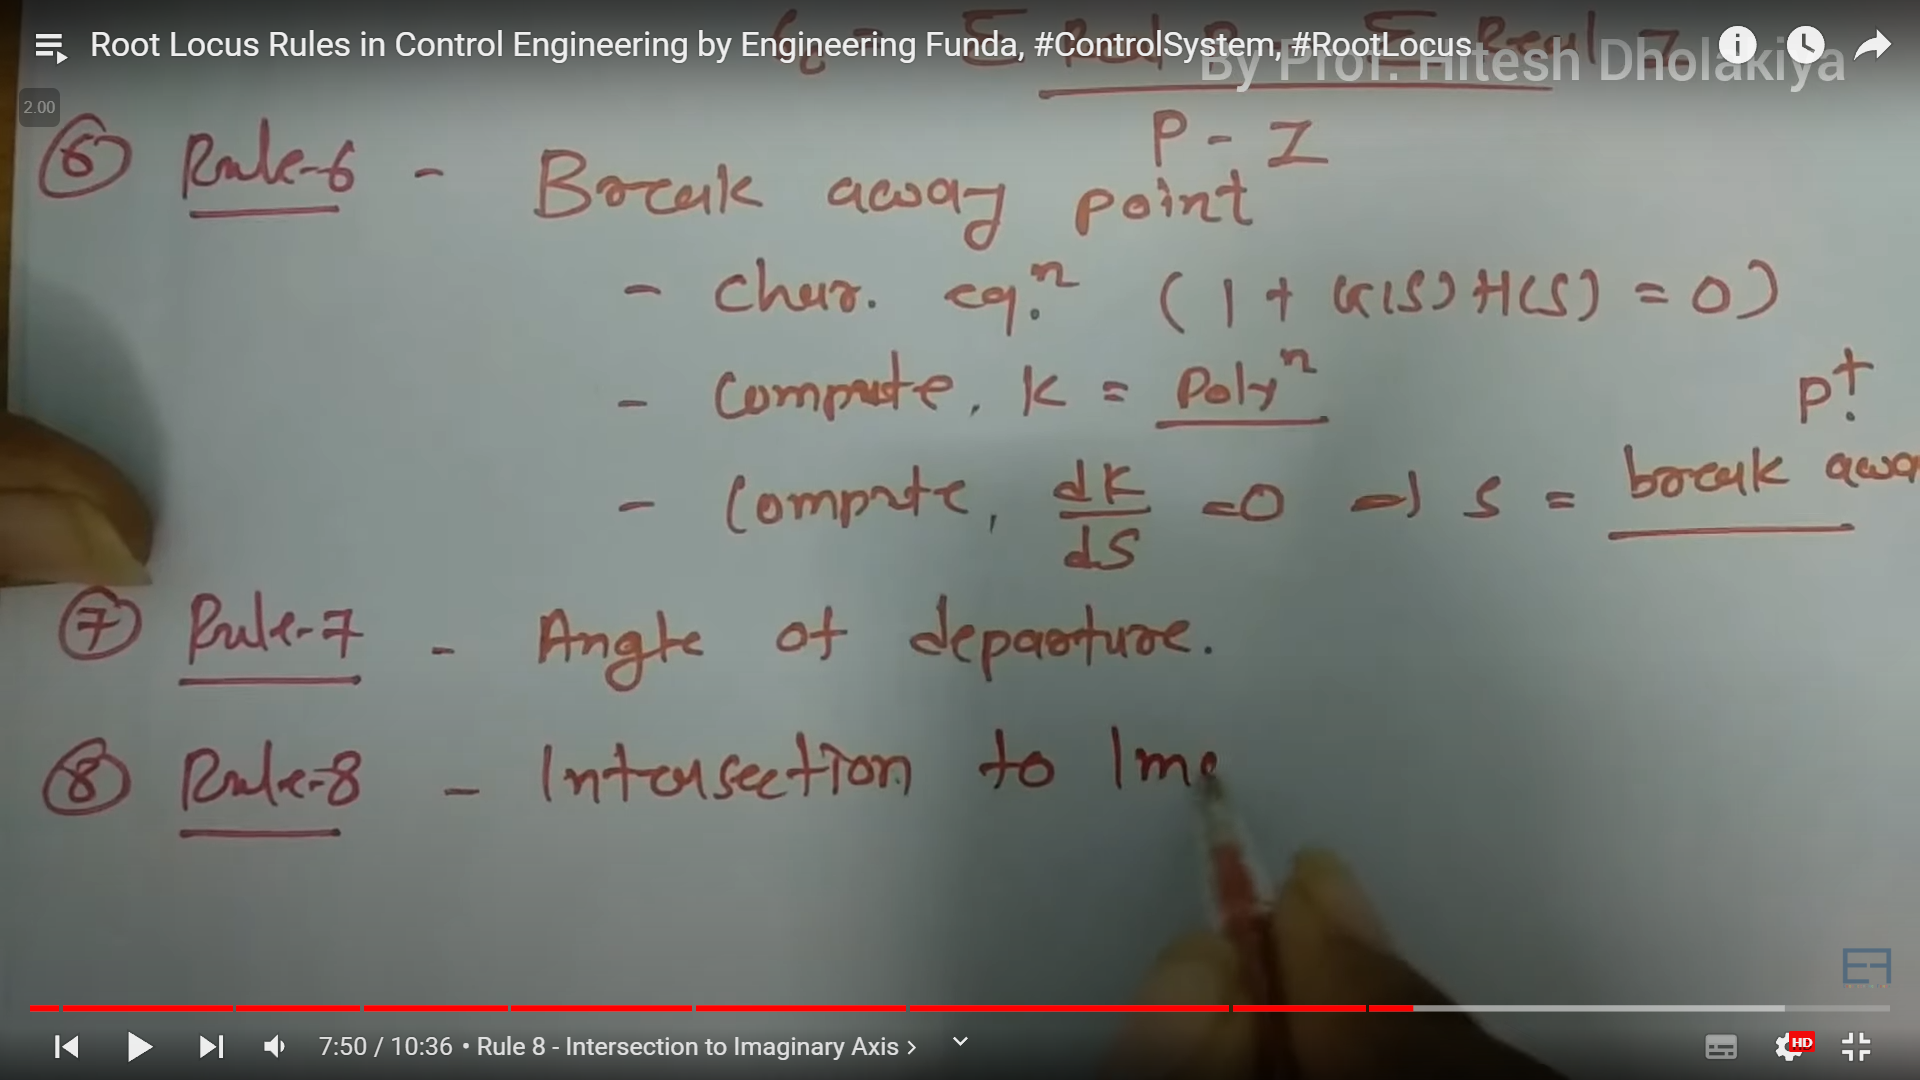 Root Locus Rules in Control Engineering by Engineering Funda, #ControlSystem, #RootLocus
By Prof. Hitesh Dholakiya
2.00
P - Z
⑥ Rule-6 - Break away point
- Char. eq.ⁿ (1 + G(S) H(S) = 0)
- Compute, K = Polyⁿ
pt.
- Compute, dK/dS = 0 ⇒ S = break awa
⑦ Rule-7 - Angle of departure.
⑧ Rule-8 - Intersection to Ima
EF
7:50 / 10:36 • Rule 8 - Intersection to Imaginary Axis >
HD